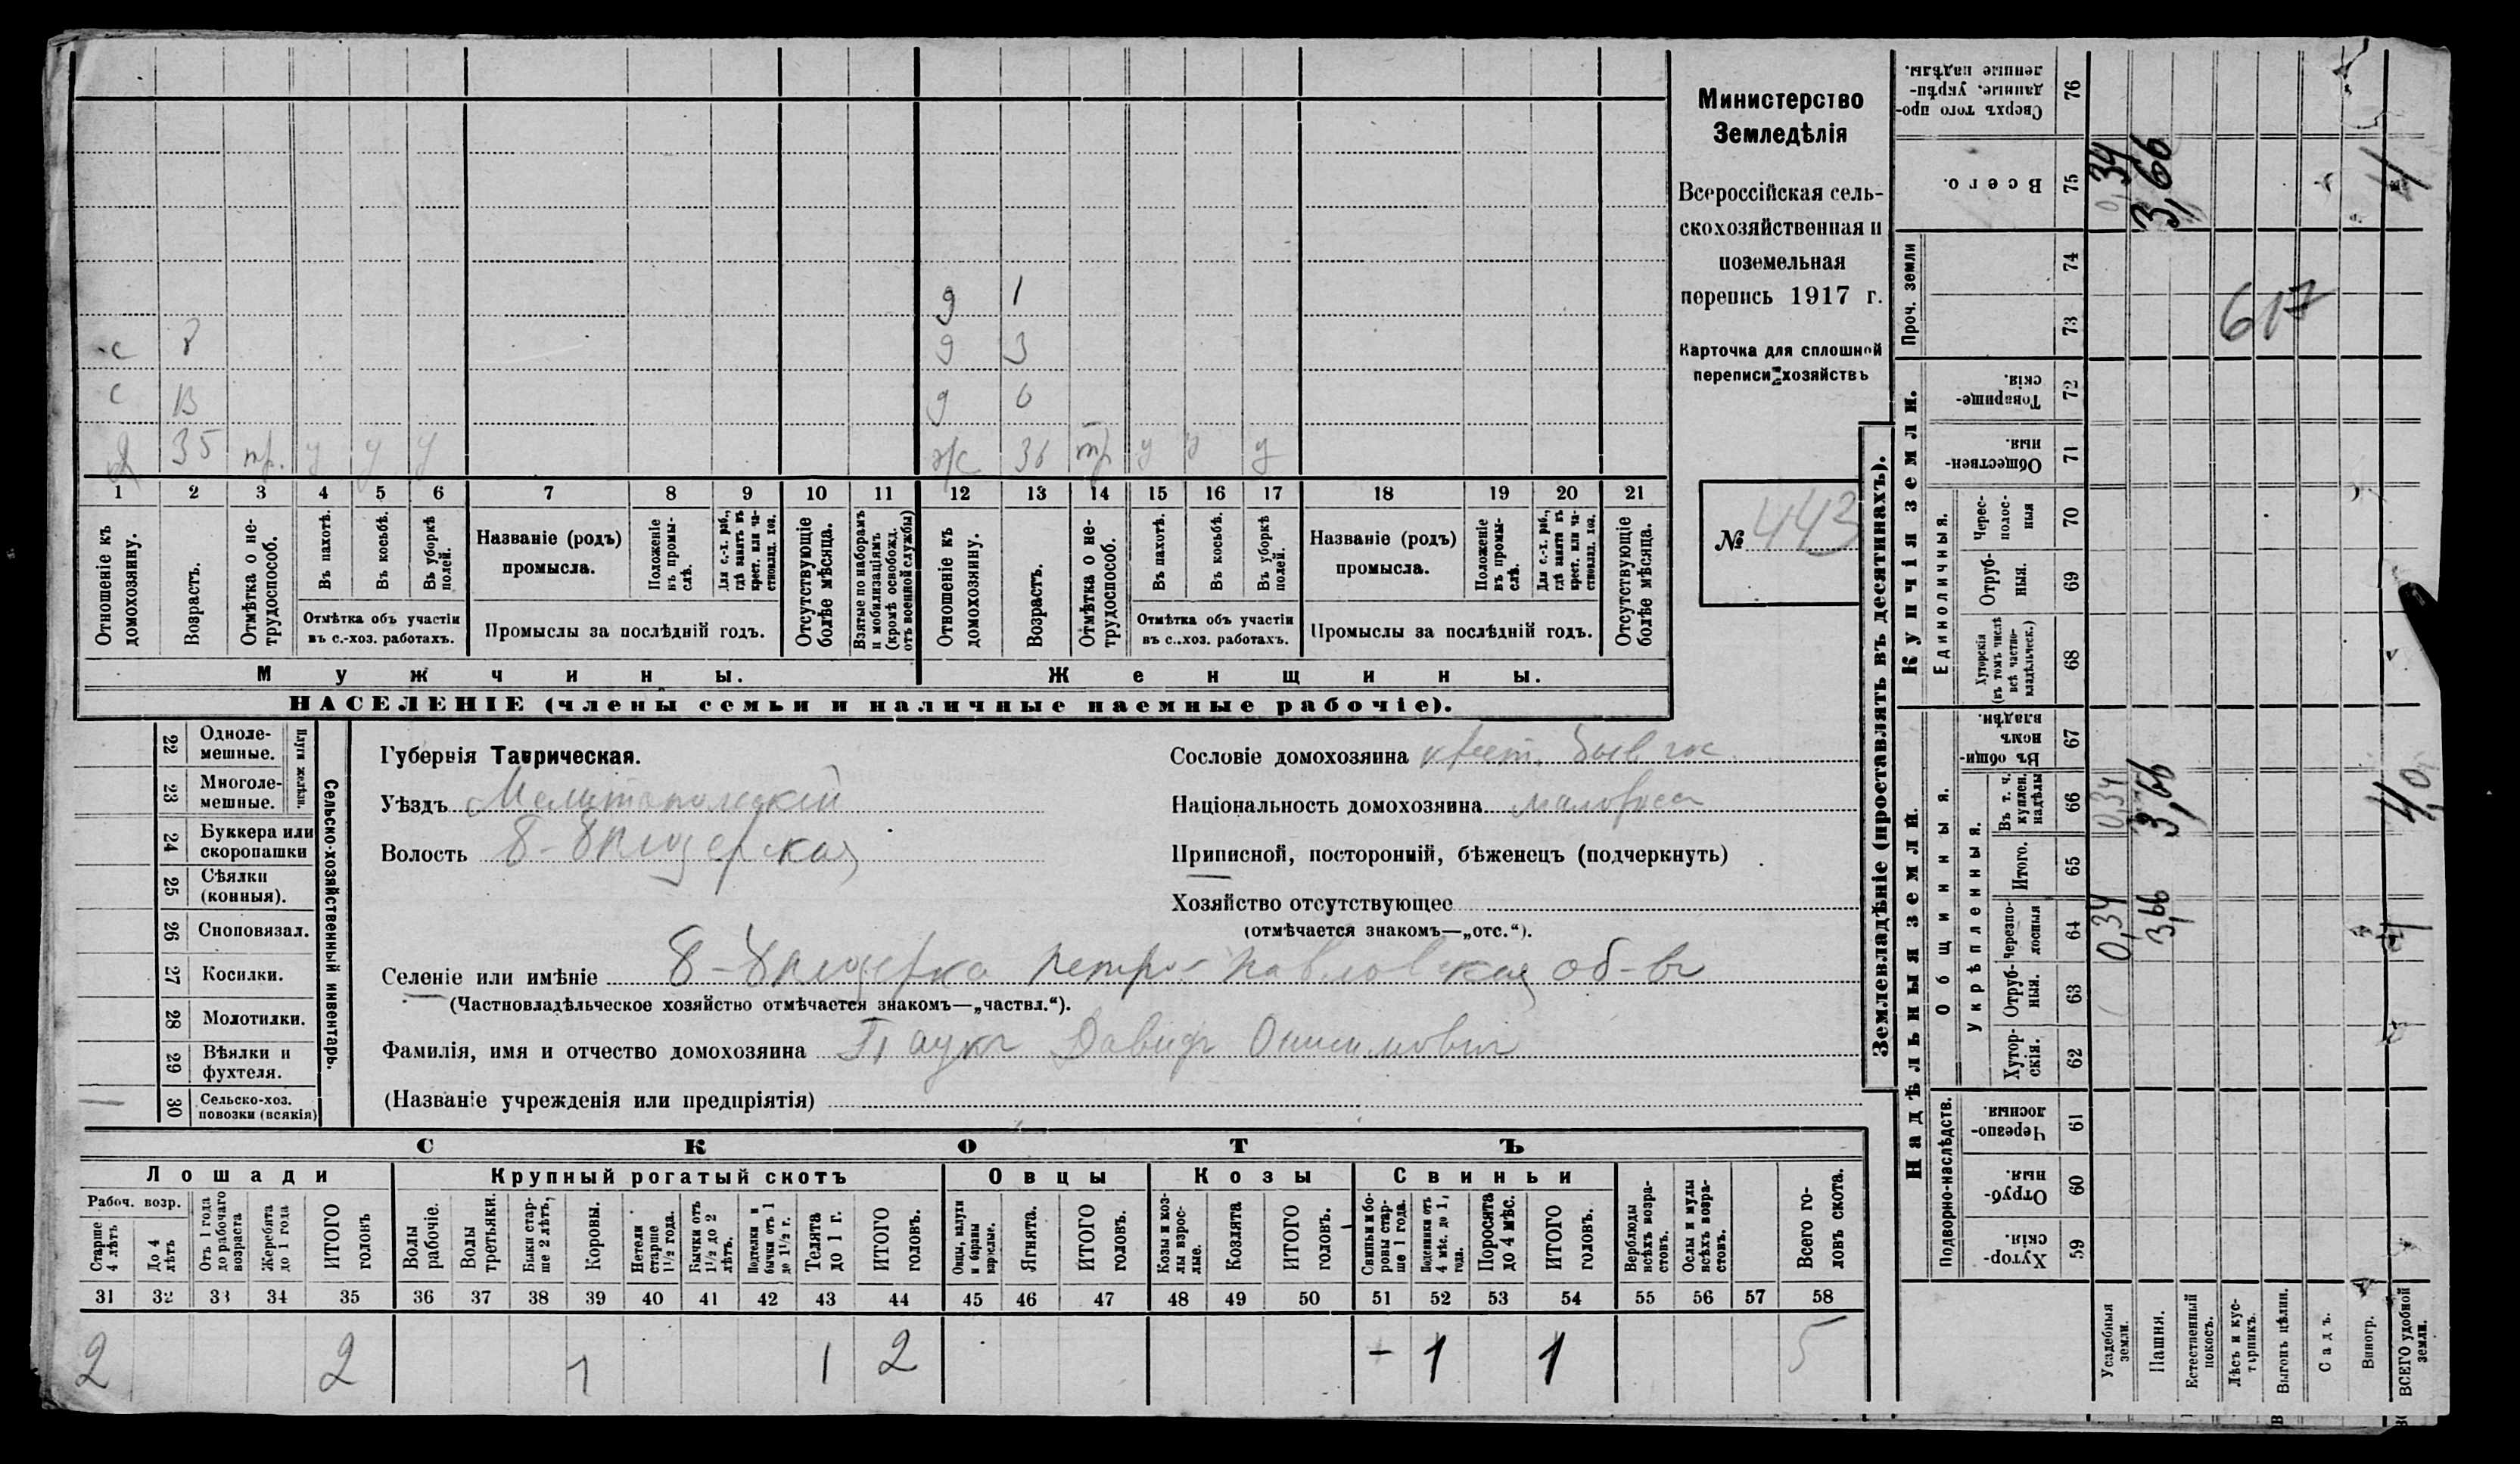 Министерство
Земледѣлія
Всероссійская сель-
скохозяйственная и
поземельная
перепись 1917 г.
Карточка для сплошной
переписи хозяйствъ
№ 443
д 1
с 8 д 3
с д 6
35 пр. у у у ж 36 у у у
1 2 3 4 5 6 7 8 9 10 11 12 13 14 15 16 17 18 19 20 21
Отношеніе къ домохозяину.
Возрастъ.
Отмѣтка о не-трудоспособ.
Въ пахотѣ.
Въ косьбѣ.
Въ уборкѣ полей.
Отмѣтка объ участіи
въ с.-хоз. работахъ.
Названіе (родъ)
промысла.
Положеніе въ промы-слѣ.
Для с.-х. раб., гдѣ занятъ въ крест. или ча-стновлад. хоз.
Промыслы за послѣдній годъ.
Отсутствующіе болѣе мѣсяца.
Взятые по наборамъ и мобилизаціямъ (кромѣ освобожд. отъ военной службы)
Отношеніе къ домохозяину.
Возрастъ.
Отмѣтка о не-трудоспособ.
Въ пахотѣ.
Въ косьбѣ.
Въ уборкѣ полей.
Отмѣтка объ участіи
въ с.-хоз. работахъ.
Названіе (родъ)
промысла.
Положеніе въ промы-слѣ.
Для с.-х. раб., гдѣ занята въ крест. или ча-стновлад. хоз.
Промыслы за послѣдній годъ.
Отсутствующіе болѣе мѣсяца.
Мужчины. Женщины.
НАСЕЛЕНІЕ (члены семьи и наличные наемные рабочіе).
22 Одноле-мешные.
23 Многоле-мешные.
Плуги желѣзн.
24 Буккера или скоропашки
25 Сѣялки (конныя).
26 Сноповязал.
27 Косилки.
28 Молотилки.
29 Вѣялки и фухтеля.
30 Сельско-хоз. повозки (всякія)
Сельско-хозяйственный инвентарь.
Губернія Таврическая.
Уѣздъ Мелитопольскій
Волость
Сословіе домохозяина крест. быв.
Національность домохозяина малоросс
Приписной, посторонній, бѣженецъ (подчеркнуть)
Хозяйство отсутствующее
(отмѣчается знакомъ—„отс.“).
Селеніе или имѣніе Петро-Павловская об-во
(Частновладѣльческое хозяйство отмѣчается знакомъ—„частвл.“).
Фамилія, имя и отчество домохозяина Паукъ Давидъ Онисимовъ
(Названіе учрежденія или предпріятія)
СКОТЪ
Лошади Крупный рогатый скотъ Овцы Козы Свиньи
Рабоч. возр.
Старше 4 лѣтъ
До 4 лѣтъ
Отъ 1 года до рабочаго возраста
Жеребята до 1 года
ИТОГО головъ
Волы рабочіе.
Волы третьяки.
Быки стар-ше 2 лѣтъ,
Коровы.
Нетели старше 1½ года.
Бычки отъ 1½ до 2 лѣтъ.
Подтелки и бычки отъ 1 до 1½ г.
Телята до 1 г.
ИТОГО головъ.
Овцы, валухи и бараны взрослые.
Ягнята.
ИТОГО головъ.
Козы и коз-лы взрос-лые.
Козлята
ИТОГО головъ.
Свиньи и бо-ровы стар-ше 1 года.
Подсвинки отъ 4 мѣс. до 1 года.
Поросята до 4 мѣс.
ИТОГО головъ.
Верблюды всѣхъ возра-стовъ.
Ослы и мулы всѣхъ возра-стовъ.
Всего го-ловъ скота.
31 32 33 34 35 36 37 38 39 40 41 42 43 44 45 46 47 48 49 50 51 52 53 54 55 56 57 58
2 2 1 1 2 - 1 1 5
Землевладѣніе (проставлять въ десятинахъ).
Надѣльныя земли. Купчія земли.
Проч. земли
Подворно-наслѣдств.
Общинныя.
Укрѣпленныя.
Единоличныя.
Хутор-скія. 59
Отруб-ныя. 60
Черезпо-лосныя. 61
Хутор-скія. 62
Отруб-ныя. 63
Черезпо-лосныя 64
Итого. 65
Въ т. ч. куплен. надѣлы 66
Въ общи-номъ владѣн. 67
Хуторскія (въ томъ числѣ всѣ частно-владѣльческ.) 68
Отруб-ныя. 69
Черес-полос-ныя 70
Обществен-ныя. 71
Товарище-скія. 72
73
74
Всего. 75
Сверхъ того про-данные, укрѣп-ленные надѣлы. 76
Усадебныя земли. 0,34 0,34 0,34
Пашня. 3,66 3,66 3,66
Естественный покосъ.
Лѣсъ и кус-тарникъ.
Выгонъ цѣлин.
Садъ.
Виногр.
ВСЕГО удобной земли. 4 4,0 4
617